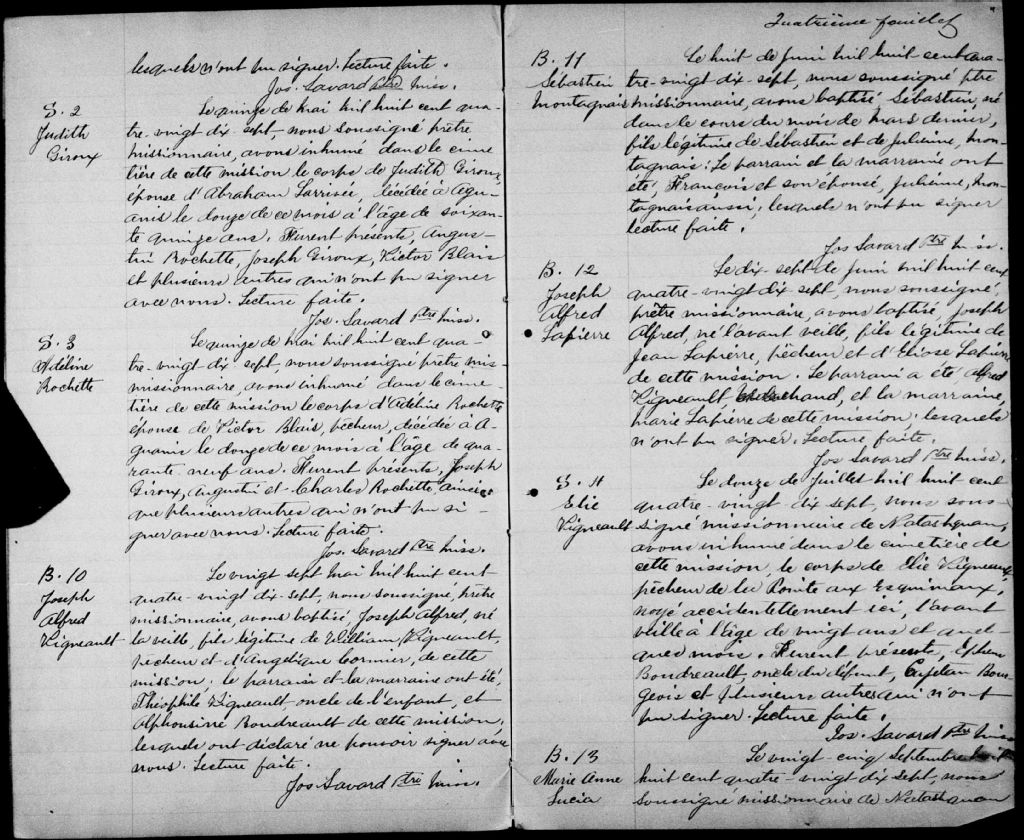 lesquels n'ont pu signer. Lecture faite.
Jos. Savard Ptre miss.
S. 2
Judith
Giroux
Le quinze de mai mil huit cent qua-
tre-vingt dix sept, nous soussigné prêtre
missionnaire, avons inhumé dans le cime
tière de cette mission le corps de Judith Giroux
épouse d'Abraham Larrivée, décédée à Agu-
anis le douze de ce mois à l'âge de soixan-
te quinze ans. Furent présents, Augus-
tin Rochette, Joseph Giroux, Victor Blais
et plusieurs autres qui n'ont pu signer
avec nous. Lecture faite.
Jos. Savard Ptre miss.
S. 3
Adéline
Rochette
Le quinze de mai mil huit cent qua-
tre-vingt dix sept, nous soussigné prêtre mis-
missionnaire, avons inhumé dans le cime-
tière de cette mission le corps d'Adéline Rochette
épouse de Victor Blais, pêcheur, décédée à A-
guanis le douze de ce mois à l'âge de qua-
rante neuf ans. Furent présents, Joseph
Giroux, Augustin et Charles Rochette ainsi
que plusieurs autres qui n'ont pu si-
gner avec nous. Lecture faite.
Jos. Savard Ptre miss.
B. 10
Joseph
Alfred
Vigneault
Le vingt sept mai mil huit cent
quatre-vingt dix-sept, nous soussigné, prêtre
missionnaire, avons baptisé, Joseph Alfred, né
la veille, fils légitime de William Vigneault,
pêcheur et d'Angélique Cormier, de cette
mission; le parrain et la marraine ont été,
Théophile Vigneault, oncle de l'enfant, et
Alphonsine Boudreault de cette mission,
lesquels ont déclaré ne pouvoir signer avec
nous. Lecture faite.
Jos Savard Ptre miss.
Quatrième feuillet
B. 11
Sébastien
montagnais
Le huit de juin mil huit cent qua-
tre-vingt dix-sept, nous soussigné ptre
missionnaire, avons baptisé, Sébastien, né
dans le cours du mois de mars dernier,
fils légitime de Sébastien et de Julienne, mon-
tagnais. Le parrain et la marraine ont
été, François et son épouse, Julienne, mon-
tagnais aussi, lesquels n'ont pu signer
lecture faite.
Jos Savard Ptre miss.
B. 12
Joseph
Alfred
Lapierre
Le dix-sept de juin mil huit cent
quatre-vingt dix sept, nous soussigné,
prêtre missionnaire, avons baptisé, Joseph
Alfred, né l'avant veille, fils légitime de
Jean Lapierre, pêcheur et d'Eliose Lapierre
de cette mission. Le parrain a été, Alfred
Vigneault, et la marraine,
marie Lapierre de cette mission; lesquels
n'ont pu signer. Lecture faite.
Jos Savard Ptre miss.
S. 4
Elie
Vigneault
Le douze de Juillet mil huit cent
quatre-vingt-dix sept, nous sous-
signé missionnaire de Natashquan,
avons inhumé dans le cimetière de
cette mission, le corps de Elie Vigneault,
pêcheur de la Pointe aux Esquimaux,
noyé accidentellement ici, l'avant
veille à l'âge de vingt ans et quel-
ques mois. Furent présents, Ephrem
Boudreault, oncle du défunt, Capitan Bour-
geois et plusieurs autres qui n'ont
pu signer. Lecture faite.
Jos. Savard Ptre miss
B. 13
Marie Anne
Lucia
Le vingt-cinq Septembre mil
huit cent quatre-vingt dix sept, nous
soussigné missionnaire de Natashquan